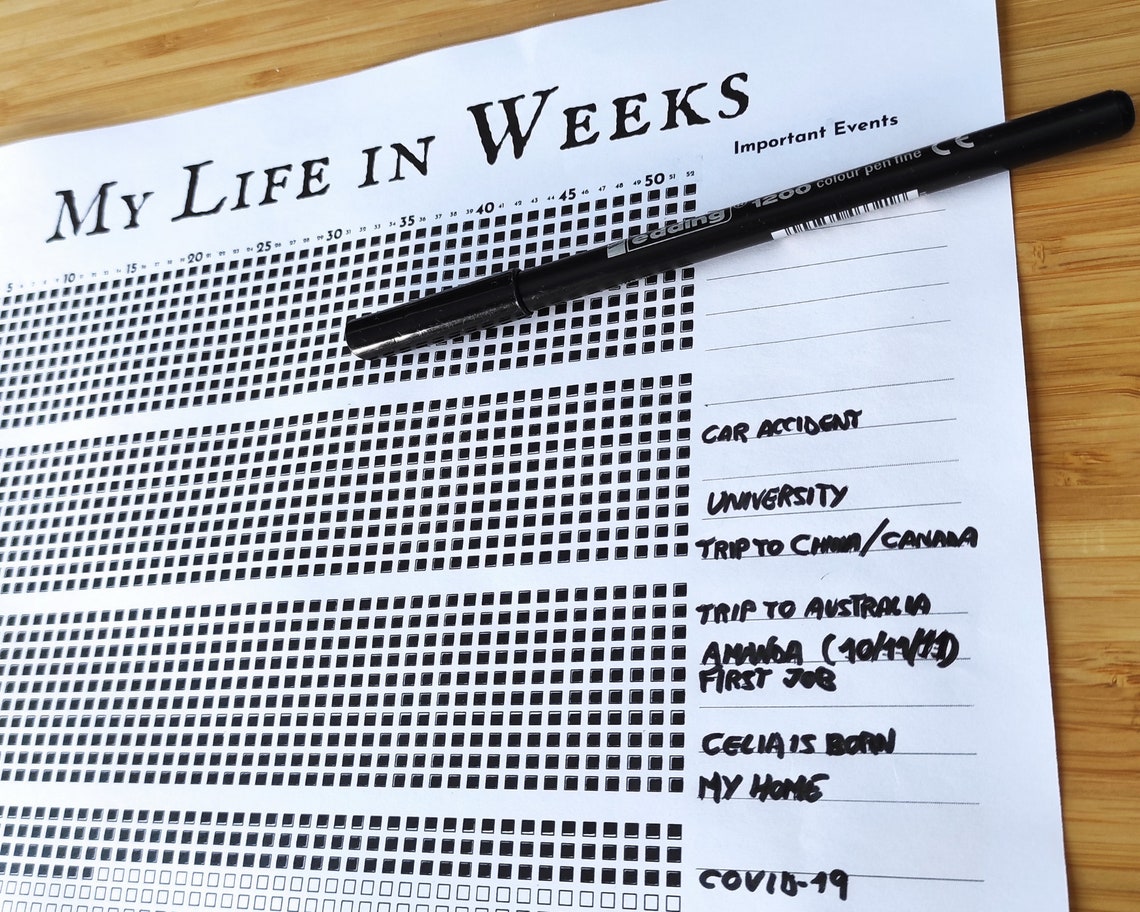 MY LIFE IN WEEKS
Important Events
5 10 15 20 25 30 35 40 45 50 51 52
edding 1200 colour pen fine CE
CAR ACCIDENT
UNIVERSITY
TRIP TO CHINA/CANADA
TRIP TO AUSTRALIA
AMANDA (10/11/11)
FIRST JOB
CELIA IS BORN
MY HOME
COVID-19